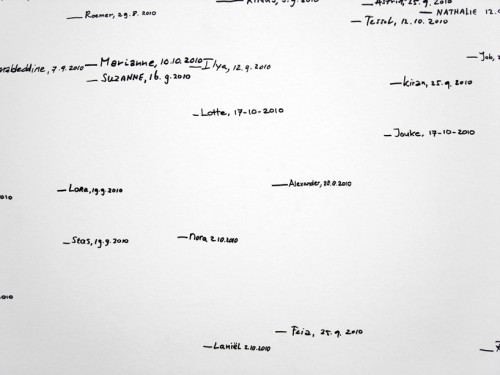 Roemer, 29.8.2010
25.9.2010
NATHALIE
Tessel, 12.10.2010
7.9.2010
Marianne, 10.10.2010
Ilya, 12.9.2010
SUZANNE, 16.9.2010
Job,
Kiran, 25.9.2010
Lotte, 17-10-2010
Jouke, 17-10-2010
Lora, 19.9.2010
Alexander,
Stas, 19.9.2010
Nora 2.10.2010
Feia, 25.9.2010
Laniël 2.10.2010